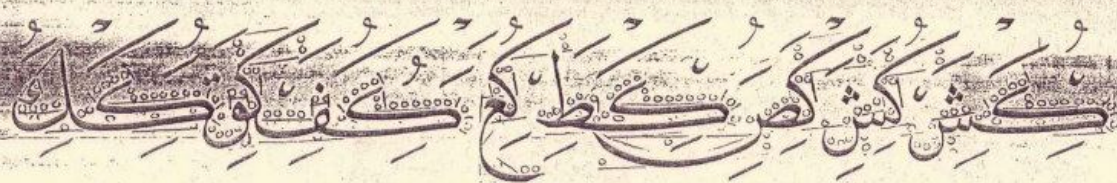 كش كش كص كط كع كف كق كك